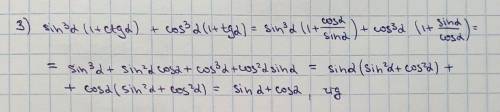 3) sin³α (1+ctgα) + cos³α (1+tgα) = sin³α (1+cosα/sinα) + cos³α (1+sinα/cosα) =
= sin³α + sin²α cosα + cos³α + cos²α sinα = sinα (sin²α + cos²α) +
+ cosα (sin²α + cos²α) = sinα + cosα, чд